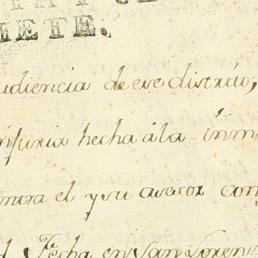 IETE.
udiencia de ese distrito,
injuria hecha á la inm
ntra el y su asesor con
Fecha en San Lorenz